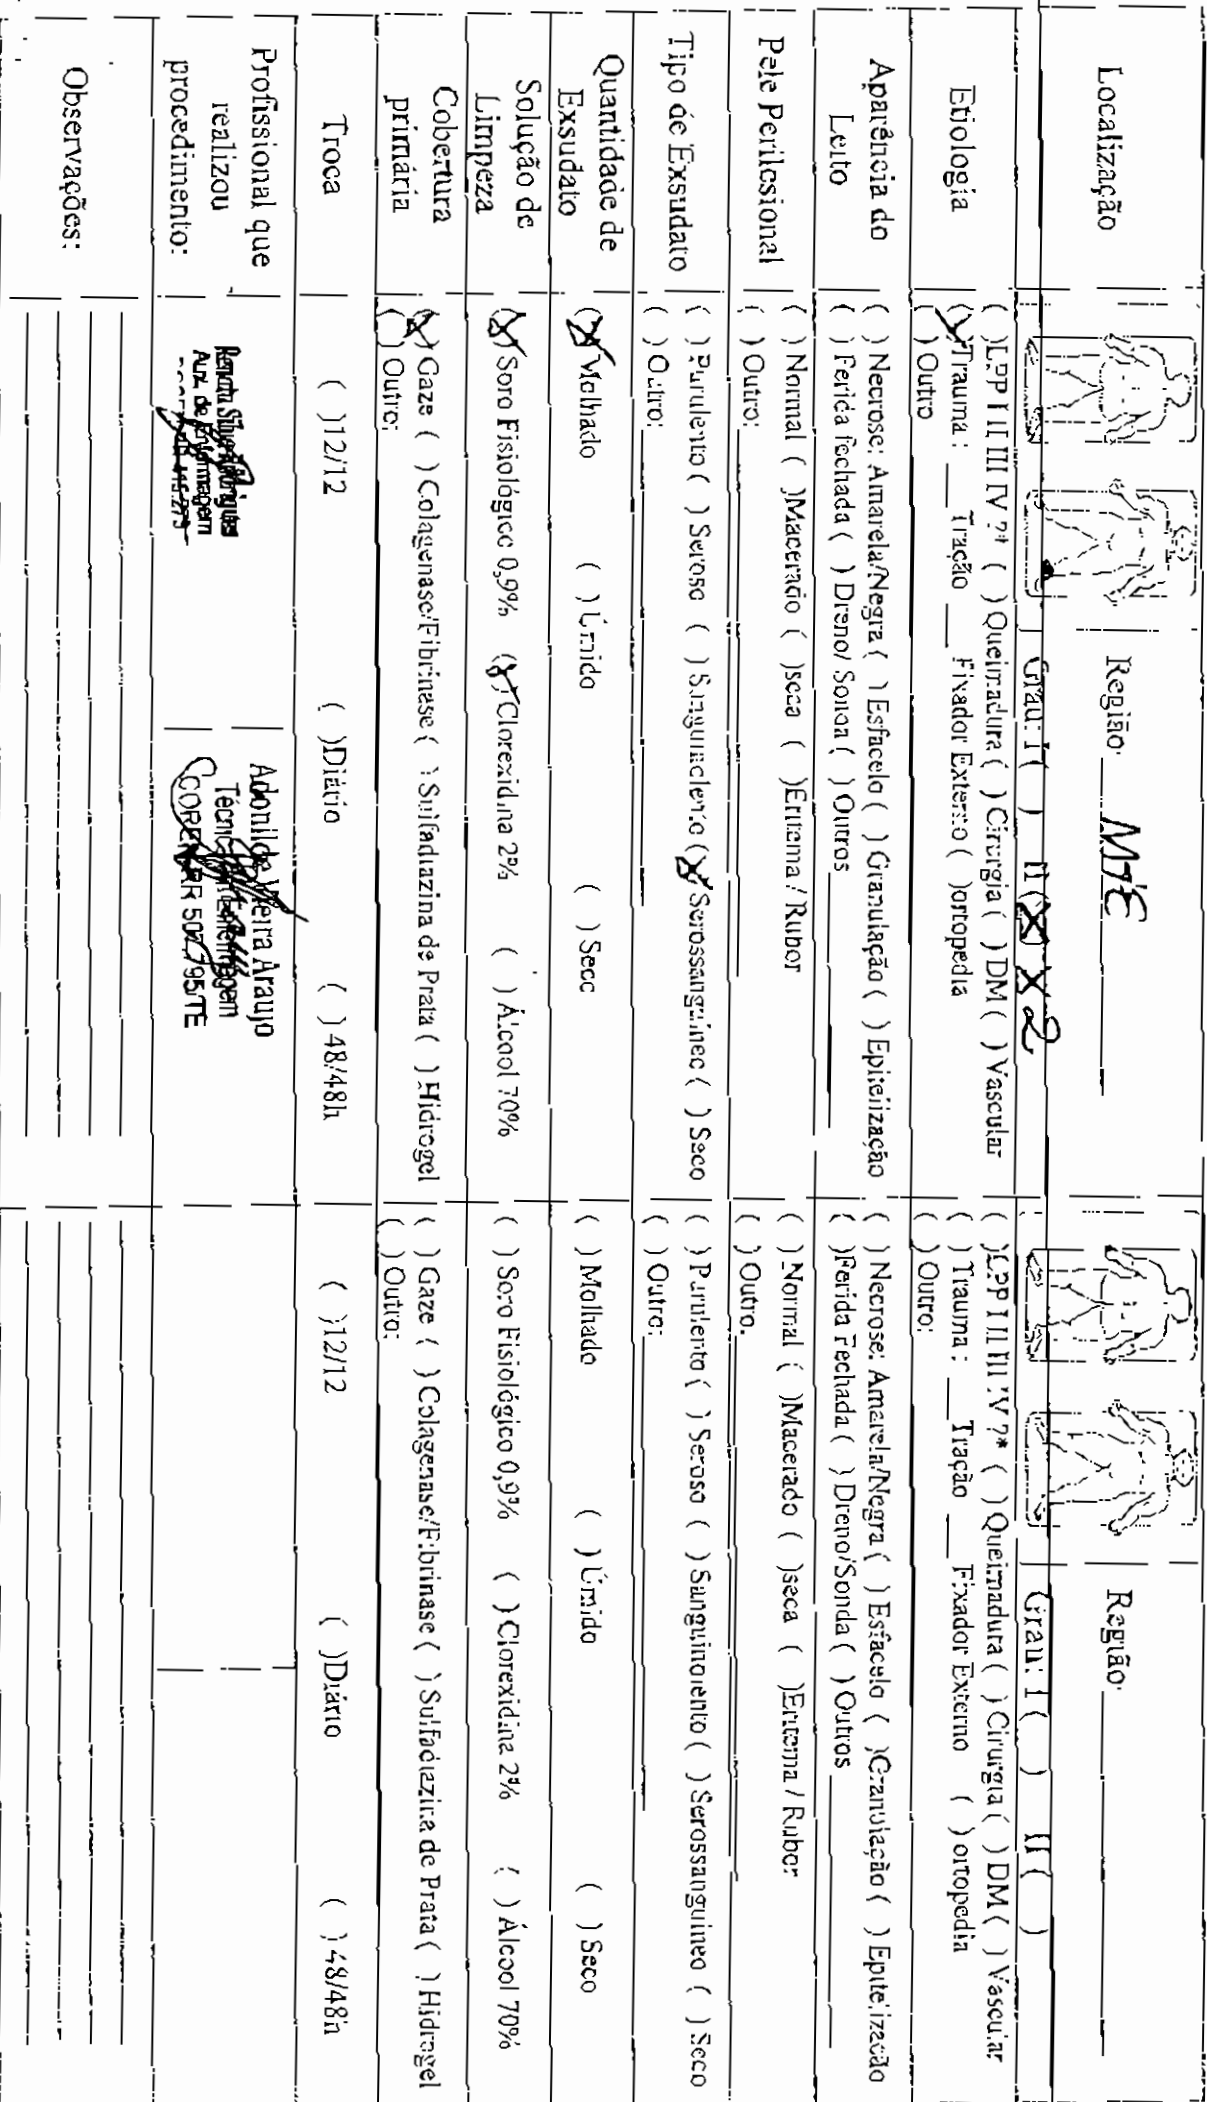 Localização
Região: MIE
Grau: I ( ) II (X) X 2
Região:
Grau: I ( ) II ( )
Etiologia
( )LPP I II III IV ?* ( )Queimadura ( ) Cirurgia ( ) DM ( ) Vascular
(X)Trauma: ___ Tração ___ Fixador Externo ( )ortopedia
( )Outro
( )LPP I II III IV ?* ( )Queimadura ( ) Cirurgia ( ) DM ( ) Vascular
( )Trauma: ___ Tração ___ Fixador Externo ( )ortopedia
( )Outro:
Aparência do
Leito
( )Necrose: Amarela/Negra ( ) Esfacelo ( ) Granulação ( ) Epitelização
( )Ferida fechada ( ) Dreno/ Sonda ( ) Outros
( )Necrose: Amarela/Negra ( ) Esfacelo ( )Granulação ( ) Epitelização
( )Ferida Fechada ( ) Dreno/Sonda ( ) Outros
Pele Perilesional
( ) Normal ( )Macerado ( )seca ( )Eritema / Rubor
( ) Outro:
( ) Normal ( )Macerado ( )seca ( )Eritema / Rubor
( ) Outro.
Tipo de Exsudato
( ) Purulento ( ) Seroso ( ) Sanguinolento (X) Serossanguíneo ( ) Seco
( ) Outro:
( ) Purulento ( ) Seroso ( ) Sanguinolento ( ) Serossanguíneo ( ) Seco
( ) Outro:
Quantidade de
Exsudato
(X) Molhado ( ) Úmido ( ) Seco
( ) Molhado ( ) Úmido ( ) Seco
Solução de
Limpeza
(X) Soro Fisiológico 0,9% (X) Clorexidina 2% ( ) Álcool 70%
( ) Soro Fisiológico 0,9% ( ) Clorexidina 2% ( ) Álcool 70%
Cobertura
primária
(X) Gaze ( ) Colagenase/Fibrinase ( ) Sulfadiazina de Prata ( ) Hidrogel
( ) Outro:
( ) Gaze ( ) Colagenase/Fibrinase ( ) Sulfadiazina de Prata ( ) Hidrogel
( ) Outro:
Troca
( )12/12 ( )Diário ( ) 48/48h
( )12/12 ( )Diário ( ) 48/48h
Profissional que
realizou
procedimento:
Renata Silva Rodrigues
Aux. de Enfermagem
Adonilde Vieira Araujo
Técnico Enfermagem
COREN-RR 507.795/TE
Observações: